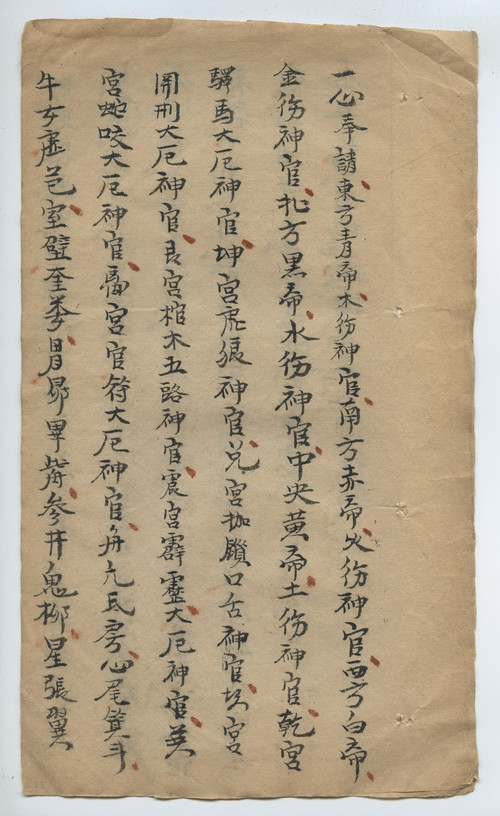 一心奉請東方青帝木伤神官南方赤帝火伤神官西方白帝
金伤神官北方黑帝水伤神官中央黄帝土伤神官乾宮
驛馬大厄神官坤宮虎張神官兑宮枷鎖口舌神官坎宮
開刑大厄神官艮宮棺木五路神官震宮霹靂大厄神官巽
宮蛇咬大厄神官离宮官符大厄神官角亢氐房心尾箕斗
牛女虚危室壁奎娄胃昴畢觜参井鬼柳星張翼